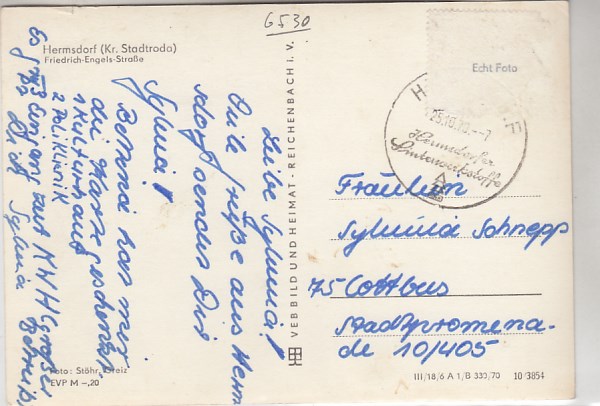 6530
Hermsdorf (Kr. Stadtroda)
Friedrich-Engels-Straße
Liebe Sylvia!
Viele Grüße aus Herm
sdorf sendet Dir
Sylvia!
Bettina hat mir
die Karte geschenkt.
1 Kulturhaus
2 Poliklinik
3 Eingang zum KWH (großer
Betrieb)
Sylvia
Foto: Stöhr, Greiz
EVP M –,20
VEB BILD UND HEIMAT · REICHENBACH i. V.
Echt Foto
25.10.70.–7
Hermsdorfer
Sinterwerkstoffe
Fräulein
Sylvia Schnepp
75 Cottbus
Stadtpromena-
de 10/405
III/18/6 A 1/B 330/70 10/3854